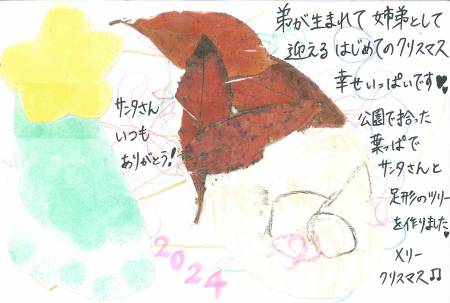 弟が生まれて 姉弟として
迎える はじめてのクリスマス
幸せいっぱいです♥
公園で拾った
葉っぱで
サンタさんと
足形のツリー
を作りました♥
メリー
クリスマス♫
サンタさん
いつも
ありがとう!
2024